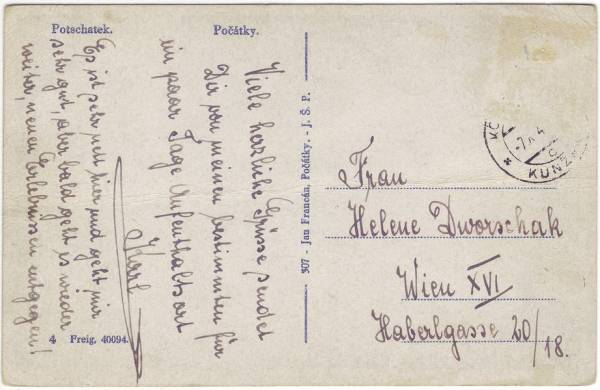 Potschatek.
Počátky.
Viele herzliche Grüsse sendet
Dir von meinen bestimmten für
ein paar Tage Aufenthaltsort
Karl
Es ist sehr nett hier und geht mir
sehr gut, aber bald geht es wieder
weiter, neuen Erlebnissen entgegen!
4 Freig. 40094.
307 - Jan Francán, Počátky. - J. Š. P.
KUNŽ
Frau
Helene Dworschak
Wien XVI
Haberlgasse 20/18.